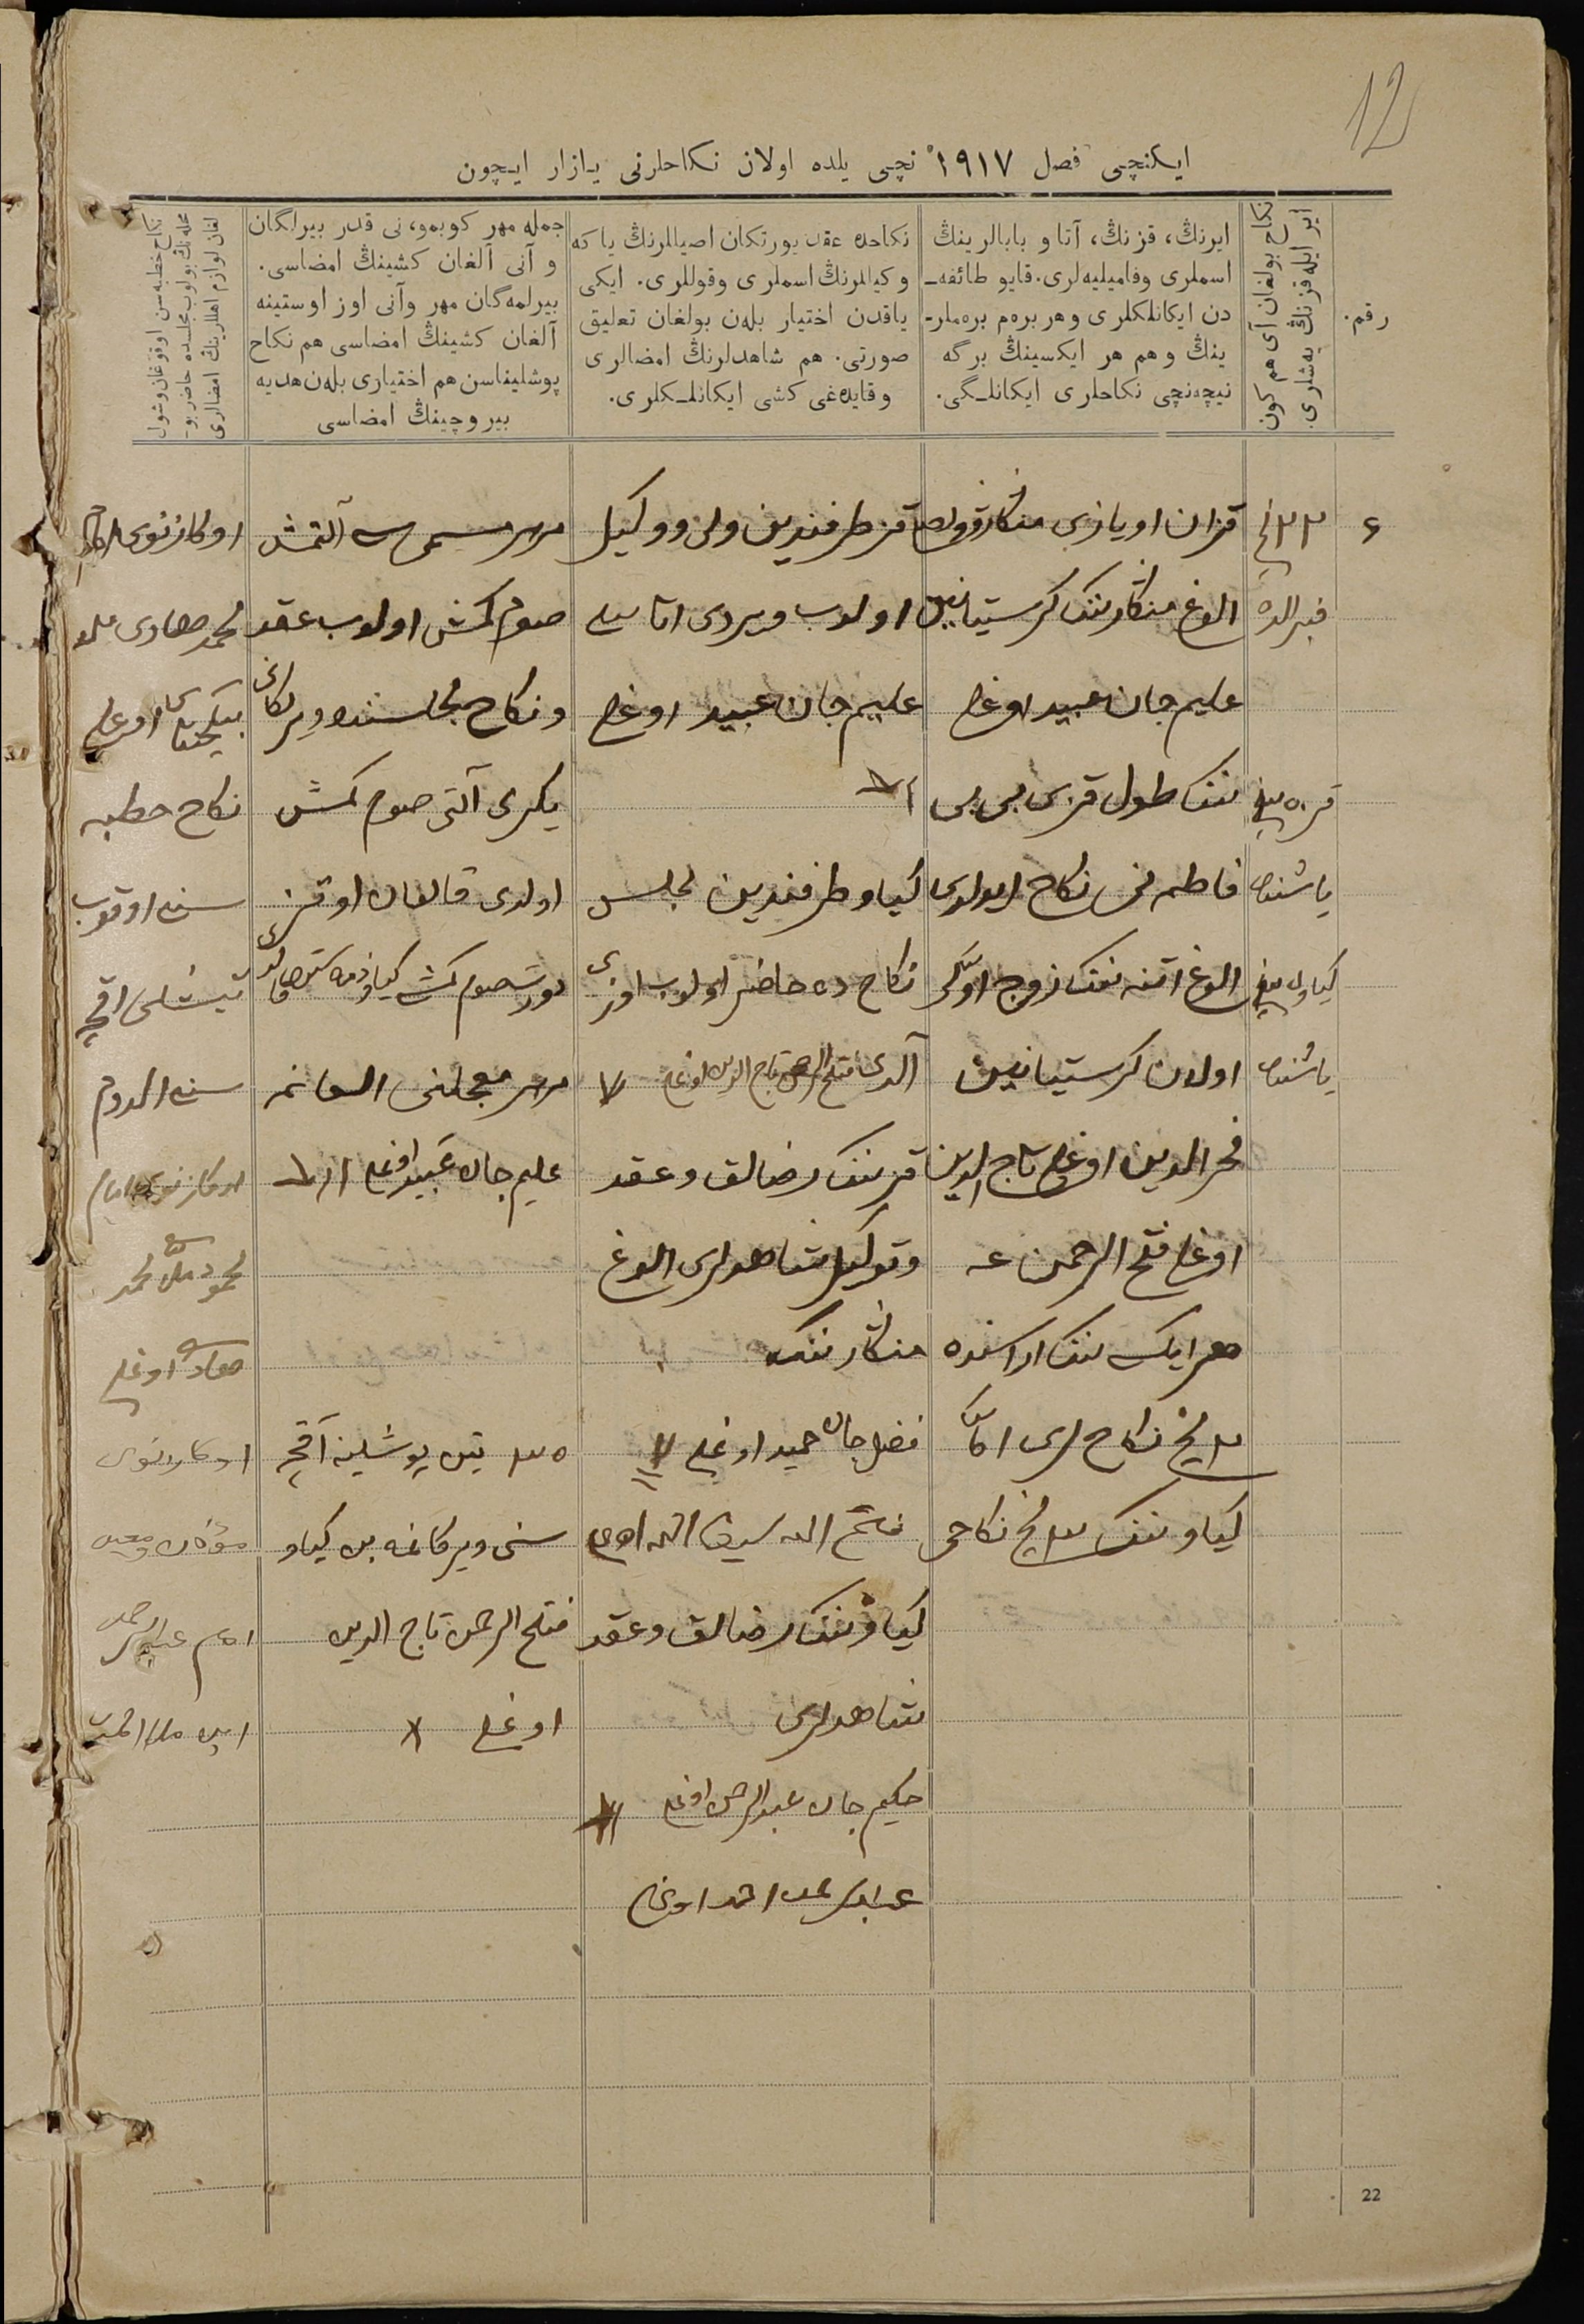 12
ایکنچی فصل ۱۹۱۷ نچی یلده اولان نکاحلرنی یازار ایچون
رقم.
نکاح بولغان آی هم کون
ایر ایله قزنڭ یه‌شلری.
ایرنڭ، قزنڭ، آتا و بابالرینڭ
اسملری وفامیلیه‌لری. قایو طائفه‌ـ
دن ایکانلکلری وهر بره‌م بره‌ملرـ
ینڭ و هم هر ایکسینڭ برگه
نیچه‌نچی نکاحلری ایکانلـگی.
نکاحده عقد یورتکان اصیللرنڭ یا که
وکیللرنڭ اسملری وقوللری. ایکی
یاقدن اختیار بلەن بولغان تعلیق
صورتی. هم شاهدلرنڭ امضالری
وقایده‌غی کشی ایکانلـکلری.
جمله مهر کوبمو، نی قدر بیرلگان
و آنی آلغان کشینڭ امضاسی.
بیرلمه‌گان مهر وآنی اوز اوستینه
آلغان کشینڭ امضاسی هم نکاح
پوشلیناسن هم اختیاری بلەن هدیه
بیروچینڭ امضاسی
نکاح خطبه سن اوقوغان وشول
محله نڭ بولوب مجلسده حاضر بوـ
لغان لوازم اهللرینڭ امضالری
۶
۲۳ نچی
فبرالده
قز ۵۰ ینچی
یاشنده
کیاو ینچی
یاشنده
قزان اویازی منکار
الوغ منکارننک کرستیانین
علیم جان عبید اوغلی
ننک طول قزی بی بی
فاطمه نی نکاح
الوغ اتنه ننک زوج اوّلگی
اولان کرستیانین
فخرالدین اوغلی تاج الدین
اوغلی فتح الرحمن غه
هر ایکیسی ننک اراسنده
۱ نچی نکاح لری امّا
کیاو ننک ۳ نچی نکاحی
قز طرفندین ولی و وکیل
اولوب ویردی اتاسی
علیم جان عبید اوغلی
کیاو طرفندین مجلس
نکاح ده حاضر اولوب اوزی
آلدی فتح الرحمن تاج الدین اوغلی
قز ننک رضالق و عقد
وتوکیل شاهدلری الوغ
منکار ننک
فضل جان حمید اوغلی
فتح الله سیف الله اوغلی
کیاو ننک رضالق وعقد
شاهدلری
حکیم جان عبدالرحمن اوغلی
احمد اوغلی
مهر مسمی سی آلتمش
صوم کمش اولوب عقد
ونکاح مجلسنده ویرلکانی
یکرمی آلتی صوم کمش
اولدی قالغان اوتز
دورت صوم کمش کیاو ذمه سنده قالدی
مهر معجلنی العانمه
علیم جان عبید اوغلی
۳۵ تین پوشلینه آقچه
سنی ویرکانمه بن کیاو
فتح الرحمن تاج الدین
اوغلی
اوکازنوی امام
محمد هادی ملا
اوغلی
نکاح خطبه
سنی اوقوب
تیشلی اقچه
سنی الدوم
اوکازنوی امام
محمود محمد
هادی اوغلی
اوکازنوی
مؤذن و معین
امام عبدالرحمن
ابن ملا احمد
22